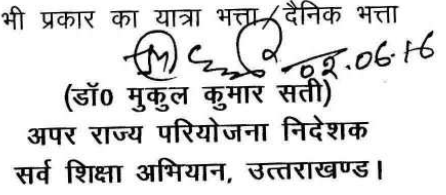 भी प्रकार का यात्रा भत्ता/दैनिक भत्ता
02.06.16
(डॉ0 मुकुल कुमार सती)
अपर राज्य परियोजना निदेशक
सर्व शिक्षा अभियान, उत्तराखण्ड।